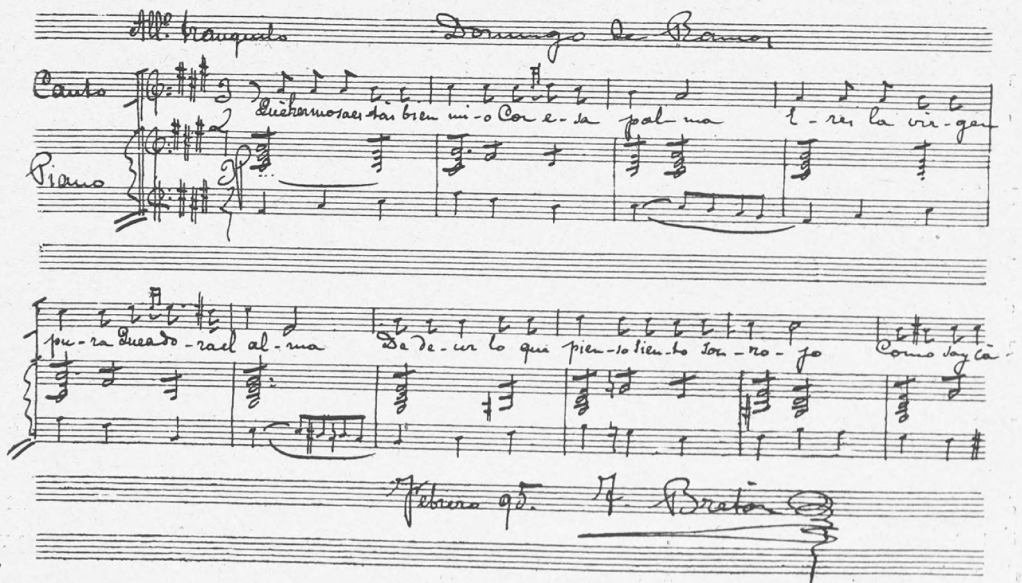 All.º tranquilo Domingo de Ramos
Canto
Qué hermosa estás bien mi-o Con e-sa pal-ma E-res la vir-gen
Piano
pu-ra Que ado-ra el al-ma De de-cir lo que pien-so sien-to son-ro-jo Como soy tá-
Febrero 95. T. Bretón